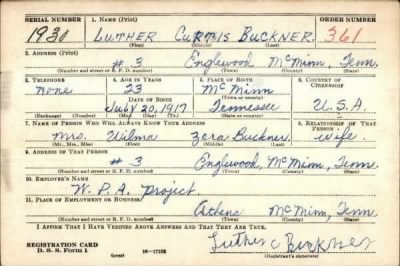 SERIAL NUMBER 1. NAME (Print) ORDER NUMBER
1930 LUTHER CURTIS BUCKNER 361
(First) (Middle) (Last)
2. ADDRESS (Print)
# 3 Englewood McMinn, Tenn.
(Number and street or R. F. D. number) (Town) (County) (State)
3. TELEPHONE 4. AGE IN YEARS 5. PLACE OF BIRTH 6. COUNTRY OF CITIZENSHIP
none 23 McMinn
(Town or county)
DATE OF BIRTH
July 20, 1917 Tennessee U.S.A.
(Exchange) (Number) (Mo.) (Day) (Yr.) (State or country)
7. NAME OF PERSON WHO WILL ALWAYS KNOW YOUR ADDRESS 8. RELATIONSHIP OF THAT PERSON
Mrs. Wilma Zora Buckner. wife
(Mr., Mrs., Miss) (First) (Middle) (Last)
9. ADDRESS OF THAT PERSON
# 3 Englewood, McMinn, Tenn.
(Number and street or R. F. D. number) (Town) (County) (State)
10. EMPLOYER'S NAME
W. P. A. project
11. PLACE OF EMPLOYMENT OR BUSINESS
Athens McMinn, Tenn.
(Number and street or R. F. D. number) (Town) (County) (State)
I AFFIRM THAT I HAVE VERIFIED ABOVE ANSWERS AND THAT THEY ARE TRUE.
REGISTRATION CARD
D. S. S. Form 1 (over) Luther C Buckner
(Registrant's signature)